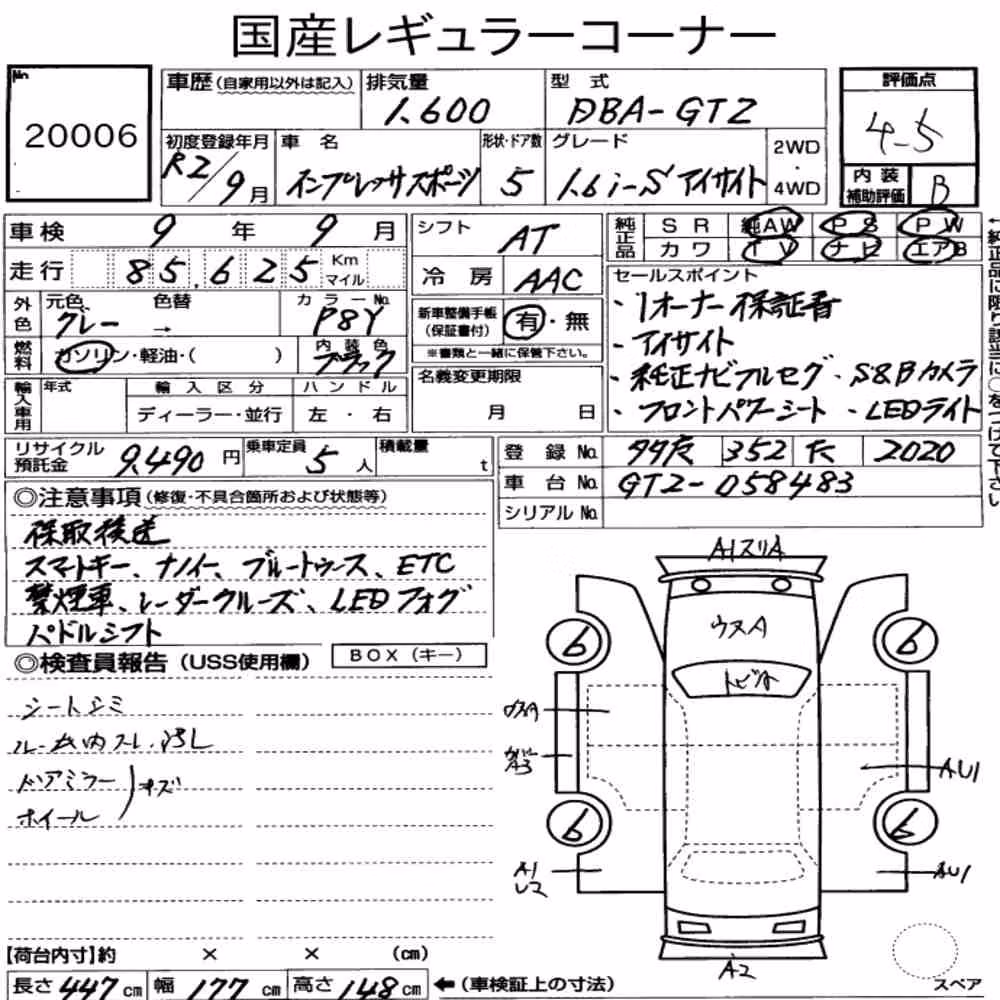 国産レギュラーコーナー
No.
20006
車歴(自家用以外は記入)
排気量
1.600
型 式
DBA-GT2
評価点
4-5
初度登録年月
R2/9月
車 名
インプレッサスポーツ
形状・ドア数
5
グレード
1.6i-S アイサイト
2WD
・
4WD
内 装
補助評価
B
車検 9 年 9 月
シフト
AT
純正品
S R 純AW P S P W
カワ T V ナビ エアB
走行 85,625 Km
マイル
冷 房 AAC
セールスポイント
・1オーナー 保証書
・アイサイト
・純正ナビフルセグ ・S&Bカメラ
・フロントパワーシート ・LEDライト
外色
元色
グレー →
色替
カラーNo.
P8Y
新車整備手帳
(保証書付)
有・無
※書類と一緒に保管下さい。
燃料
ガソリン・軽油・( )
内 装 色
ブラック
名義変更期限
月 日
輸入車用
年式
輸 入 区 分
ディーラー・並行
ハ ン ド ル
左 ・ 右
リサイクル
預託金
9.490 円
乗車定員
5 人
積載量
t
登 録 No.
352
2020
車 台 No. GT2-058483
シリアル No.
←純正品に限り該当に○をつけて下さい
◎注意事項(修復・不具合箇所および状態等)
保取後送
スマートキー、ナノイー、ブルートゥース、ETC
禁煙車、レーダークルーズ、LEDフォグ
パドルシフト
◎検査員報告(USS使用欄)
BOX(キー)
シートシミ
ルーム内スレ.汚レ
ドアミラー
ホイール
キズ
A1スリA
ウスA
トビA
6
6
6
6
ウスA
A3
AU1
A1
U2
AU1
A2
スペア
【荷台内寸】約 × × (cm)
長さ 447 cm 幅 177 cm 高さ 148 cm ←(車検証上の寸法)